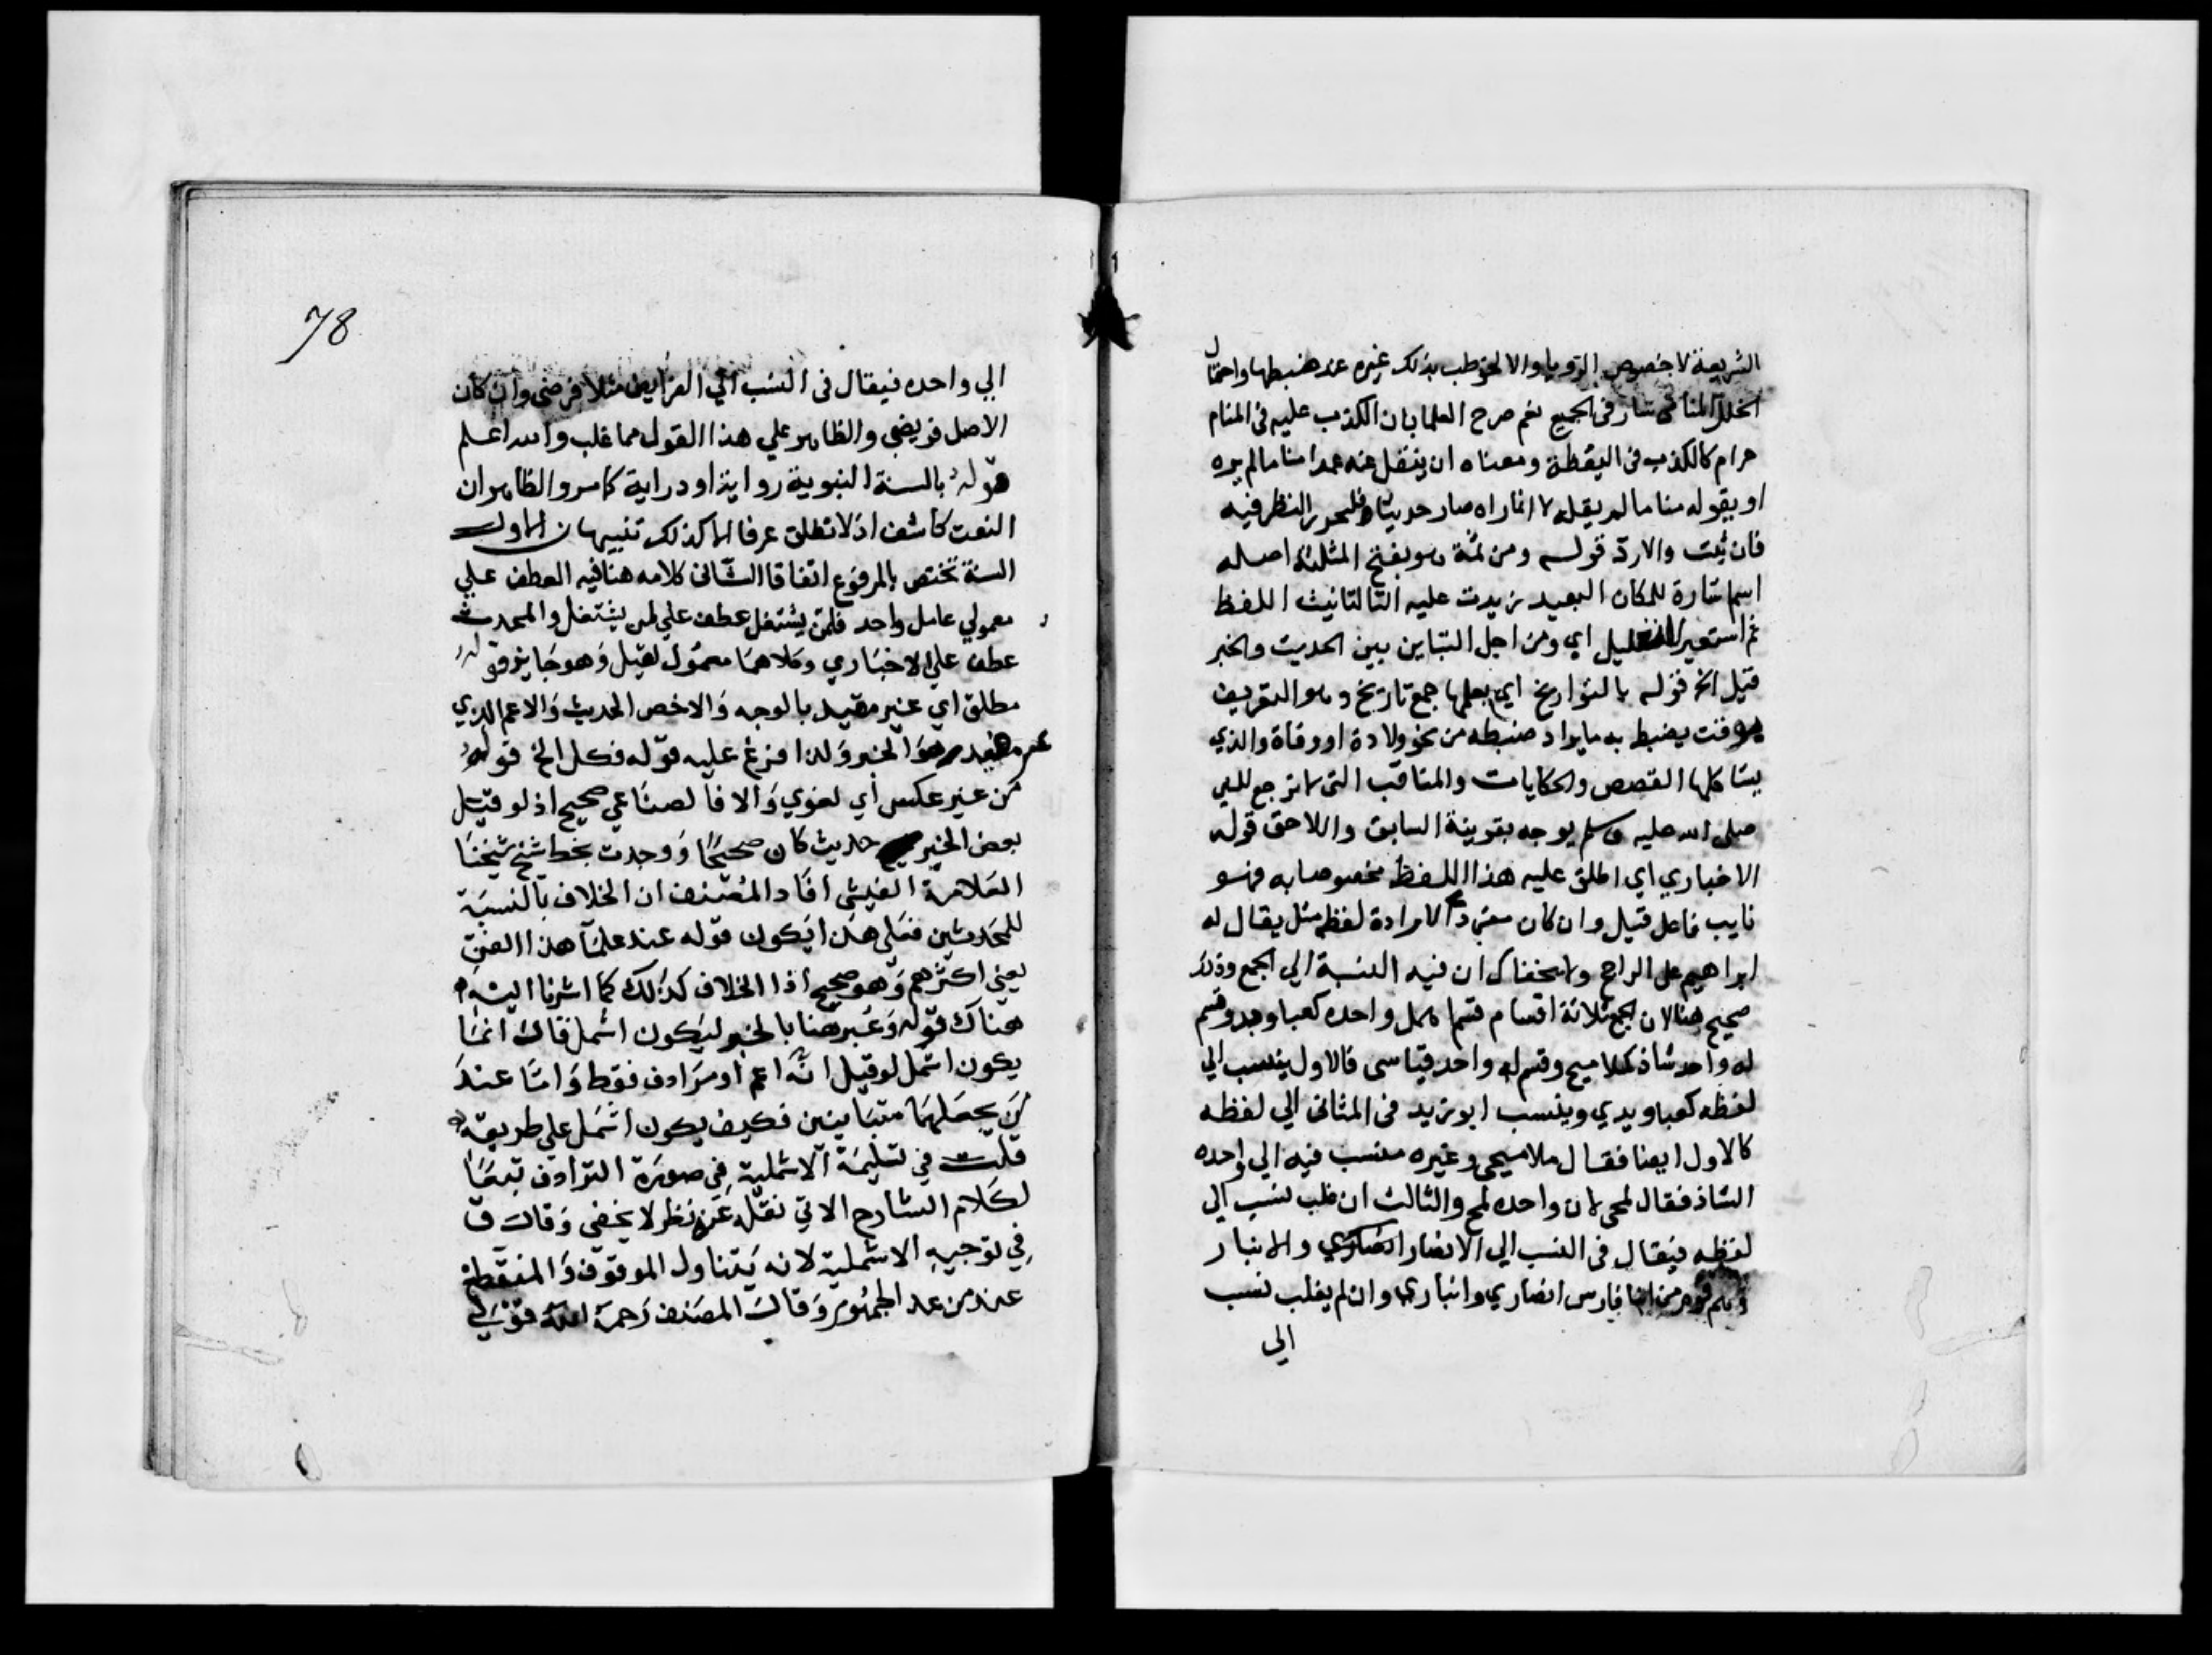 الشريعة لا خصوص الرويا والا لخوطب بذلك غيره عند ضبطها واحتمال
الخلل المنامي سار في الجميع نعم صرح العلما بان الكذب عليه في المنام
حرام كالكذب في اليقظة ومعناه ان ينقل عنه عمدا مناما لم يره
او بقوله مناما لم يقله لا انما راه صار حديثا فليحرر النظر فيه
فان ثبت والا رد قوله ومن ثمة هو بفتح المثلثة اصله
اسم اشارة للمكان البعيد زيدت عليه التا لتانيث اللفظ
ثم استعير للتعليل اي ومن اجل التباين بين الحديث والخبر
قيل الخ قوله بالتواريخ اي بعلمها جمع تاريخ وهو التعريف
بوقت يضبط به ما يراد ضبطه من نحو ولادة او وفاة والذي
يشاكلها القصص والحكايات والمناقب التي لا ترجع للنبي
صلى الله عليه وسلم بوجه بقرينة السابق واللاحق قوله
الاخباري اي اطلق عليه هذا اللفظ مخصوصا به فهو
نايب فاعل قيل وان كان مفردا لارادة لفظه مثل يقال له
ابراهيم على الراجح ولا يخفاك ان فيه النسبة الي الجمع وذلك
صحيح هنا لان الجمع ثلاثة اقسام قسم اهمل واحده كعباديد وقسم
له واحد شاذ كملاميح وقسم له واحد قياسى فالاول ينسب الي
لفظه كعباديدي وينسب ابو زيد في الثاني الي لفظه
كالاول ايضا فقال ملاميحي وغيره منسب فيه الي واحده
الشاذ فقال لمحي لان واحده لمح والثالث ان غلب نسب الي
لفظه فيقال في النسب الي الانصار انصاري والانبار
وهم قوم من ابنا فارس انصاري وانباري وان لم يغلب نسب
الي
78
الي واحده فيقال في النسب الي الفرايض مثلا فرضي وان كان
الاصل فريضي والظاهر علي هذا القول مما غلب والله اعلم
قوله بالسنة النبوية رواية او دراية كما مر والظاهر ان
النعت كاشف اذ لا تطلق عرفا الا كذلك تنبيهان الاول
السنة تختص بالمرفوع اتفاقا الثاني كلامه هنا فيه العطف علي
معمولي عامل واحد فلمن يشتغل عطف علي لمن يشتغل والمحدث
عطف علي الاخباري وكلاهما معمول لقيل وهو جايز قوله
مطلق اي غير مقيد بالوجه والاخص الحديث والاعم الذي
غير مقيد هو الخبر ولذا فرع عليه قوله فكل الخ قوله
من غير عكس اي لغوي والا فالصناعي صحيح اذ لو قيل
بعض الخبر حديث كان صحيحا ووجدت بخط شيخ شيخنا
العلامة الفيشي افاد المصنف ان الخلاف بالنسبة
للمحدثين فعلي هذا يكون قوله عند علما هذا الفن
يعني اكثرهم وهو صحيح اذا الخلاف كذلك كما اشرنا اليه
هناك قوله وعبر هنا بالخبر ليكون اشمل قال انما
يكون اشمل لو قيل انه اعم او مرادف فقط واما عند
من يجعلهما متباينين فكيف يكون اشمل علي طريقته
قلت في تسليمه الاشملية في صورة الترادف تبعا
لكلام الشارح الاتي نقله عنه نظر لا يخفى وقال ق
في توجيه الاشملية لانه يتناول الموقوف والمنقطع
عند من عدا الجمهور وقال المصنف رحمه الله قولي